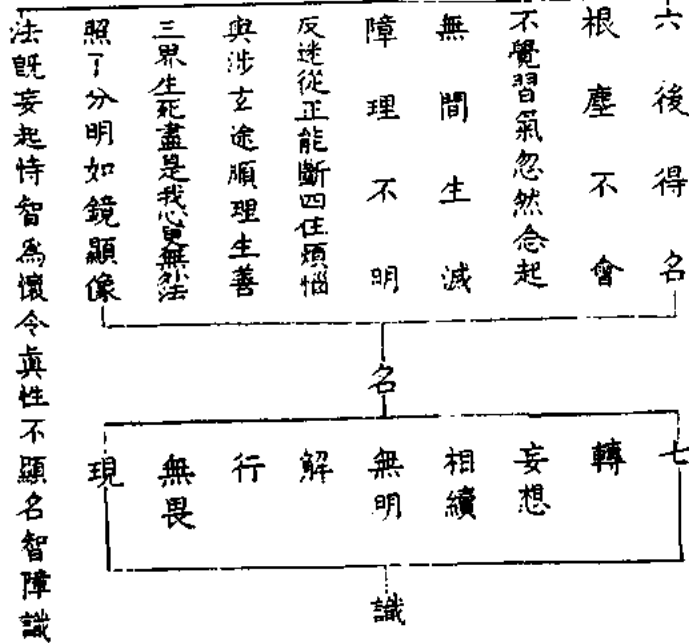 六後得名
根塵不會
不覺習氣忽然念起
無間生滅
障理不明
反迷從正能斷四住煩惱
與涉玄途順理生善
三界生死盡是我心更無外法
照了分明如鏡顯像
名
七
轉
妄想
相續
無明
解
行
無畏
現
識
法既妄起恃智為懷令真性不顯名智障識